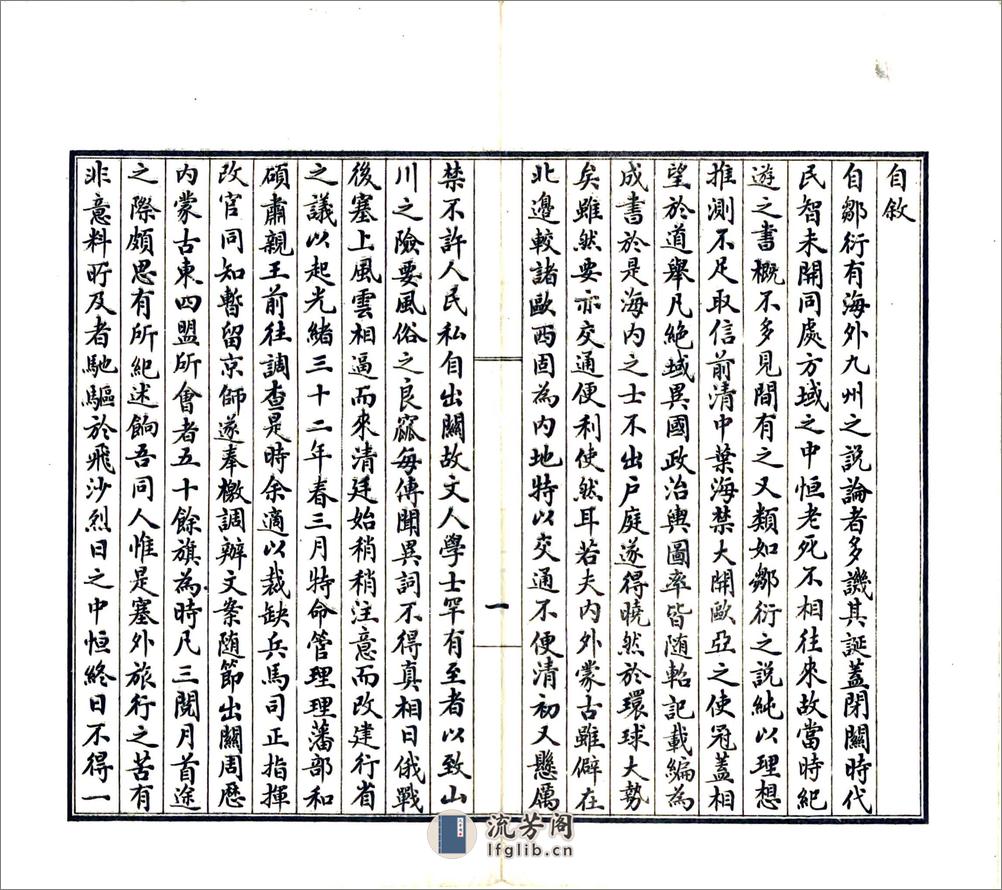 自敘
自鄒衍有海外九州之説論者多譏其誕蓋閉關時代
民智未開同處方域之中恒老死不相往來故當時紀
遊之書概不多見間有之又類如鄒衍之說純以理想
推測不足取信前清中葉海禁大開歐亞之使冠蓋相
望於道舉凡絶域異國政治輿圖率皆随軺記載編為
成書於是海内之士不出户庭遂得曉然於環球大勢
矣雖然要亦交通便利使然耳若夫内外蒙古雖僻在
北邊較諸歐西固為内地特以交通不便清初又懸厲
一
禁不許人民私自出關故文人學士罕有至者以致山
川之險要風俗之良窳每傳聞異詞不得真相日俄戰
後塞上風雲相逼而來清廷始稍稍注意而改建行省
之議以起光緒三十二年春三月特命管理理藩部和
碩肅親王前往調查是時余適以裁缺兵馬司正指揮
改官同知暫留京師遂奉檄調辦文案随節出關周歷
内蒙古東四盟所會者五十餘旗為時凡三閱月首途
之際頗思有所紀述餉吾同人惟是塞外旅行之苦有
非意料所及者馳驅於飛沙烈日之中恒終日不得一
流芳阁
lfglib.cn